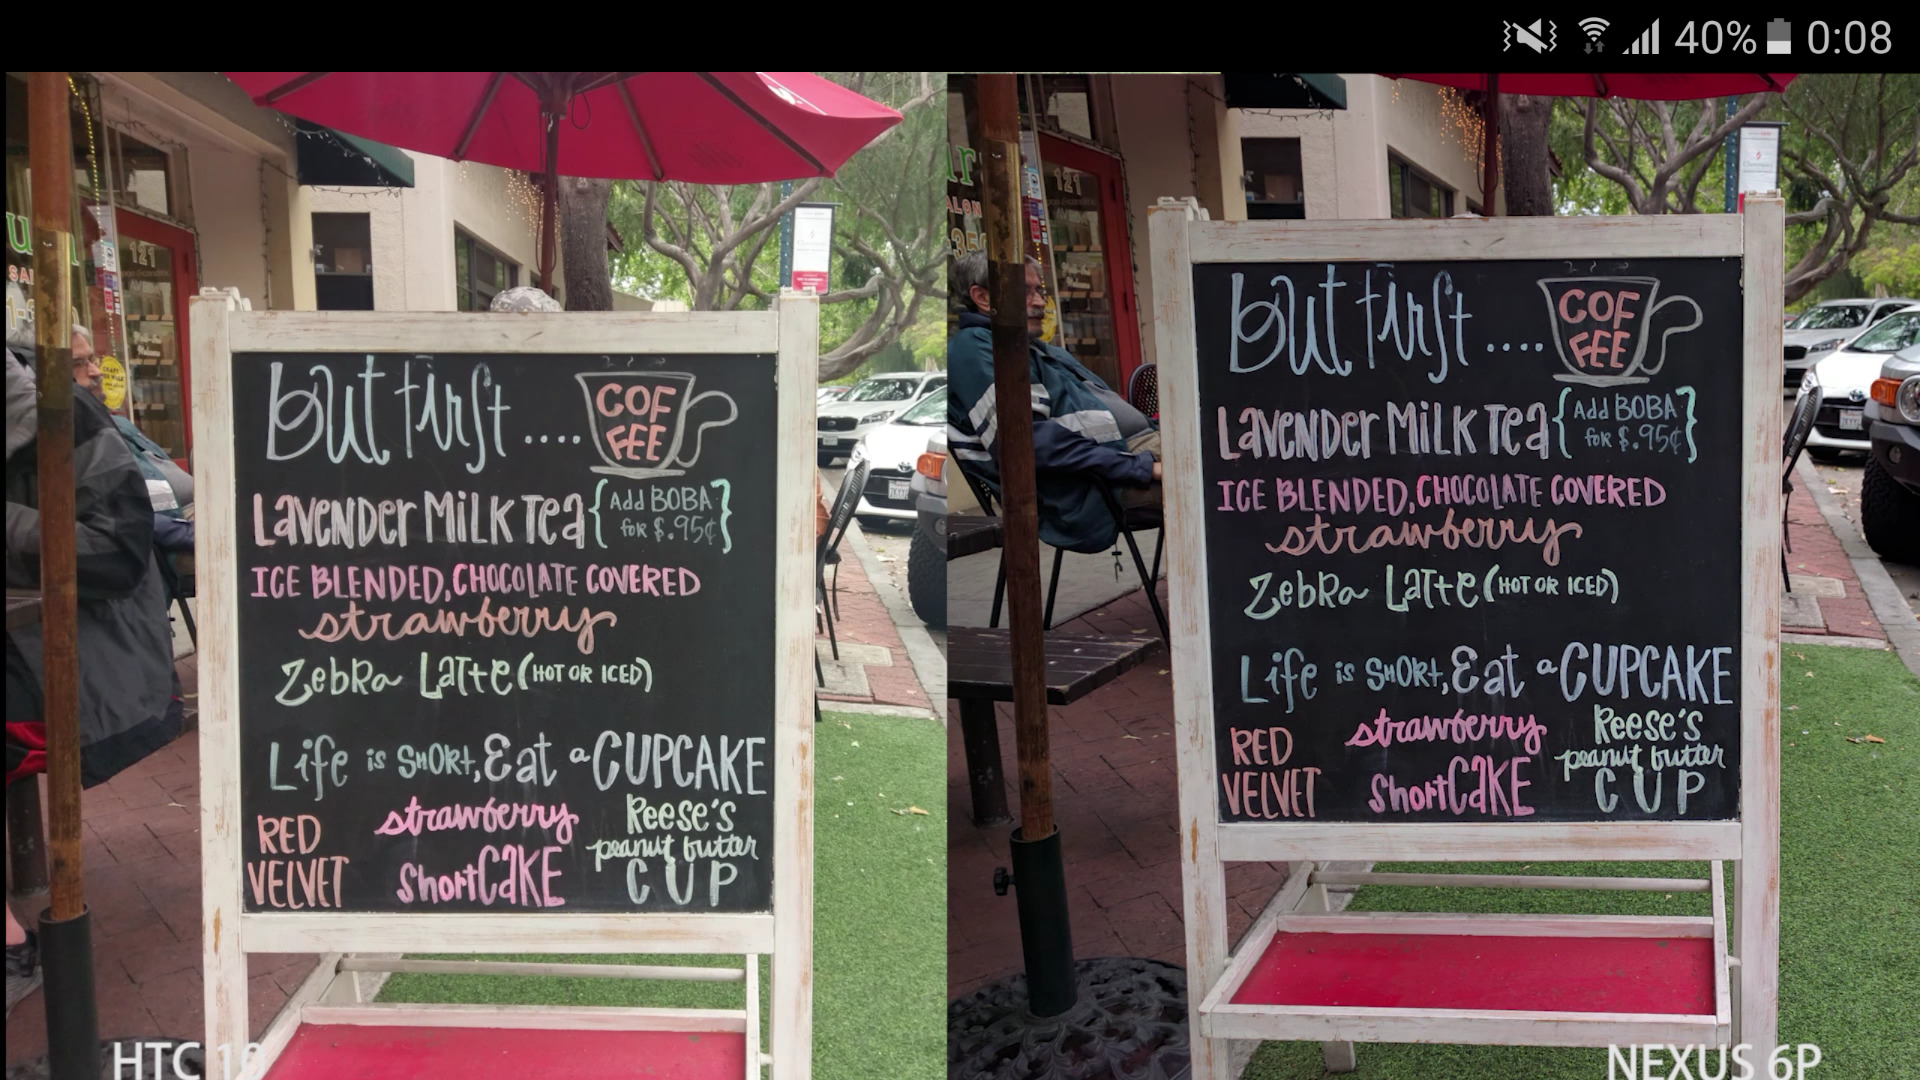 40% 0:08
121
but first .... COFFEE
LAVENDER MILK TEA {Add BOBA for $.95¢}
ICE BLENDED, CHOCOLATE COVERED
strawberry
Zebra Latte (HOT OR ICED)
Life is SHORt, Eat a CUPCAKE
RED VELVET
strawberry ShortCAKE
Reese's peanut butter CUP
HTC 10
121
but first .... COFFEE
LAVENDER MILK TEA {Add BOBA for $.95¢}
ICE BLENDED, CHOCOLATE COVERED
strawberry
Zebra Latte (HOT OR ICED)
Life is SHORt, Eat a CUPCAKE
RED VELVET
strawberry ShortCAKE
Reese's peanut butter CUP
NEXUS 6P